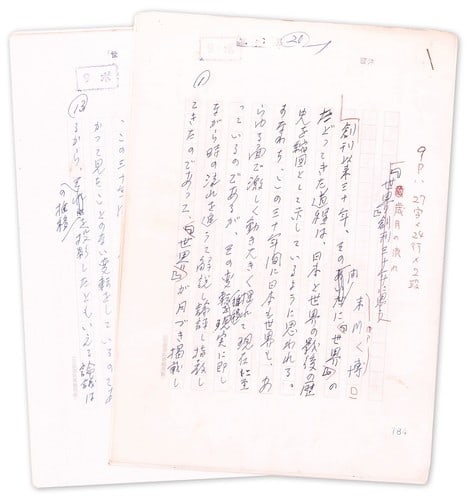 20
1
9P. 27字×24行×2段
歳月の流れ
「世界」創刊三十年に
末川 博
創刊以来三十年、その間に「世界」の
たどってきた道程は、日本と世界の戦後の歴
史を縮図として示しているように思われる。
すなわち、この三十年間に日本も世界も、あ
らゆる面で激しく動き大きく揺れて現在に至
っているのであるが、その現実に即し
ながら時の流れを追うて解説し論評し指摘し
てきたのであって、「世界」が月々掲載し
13
この三十年
かつて見たことのない変転をしているのであ
るから、その推移を投影したともいえる論説は